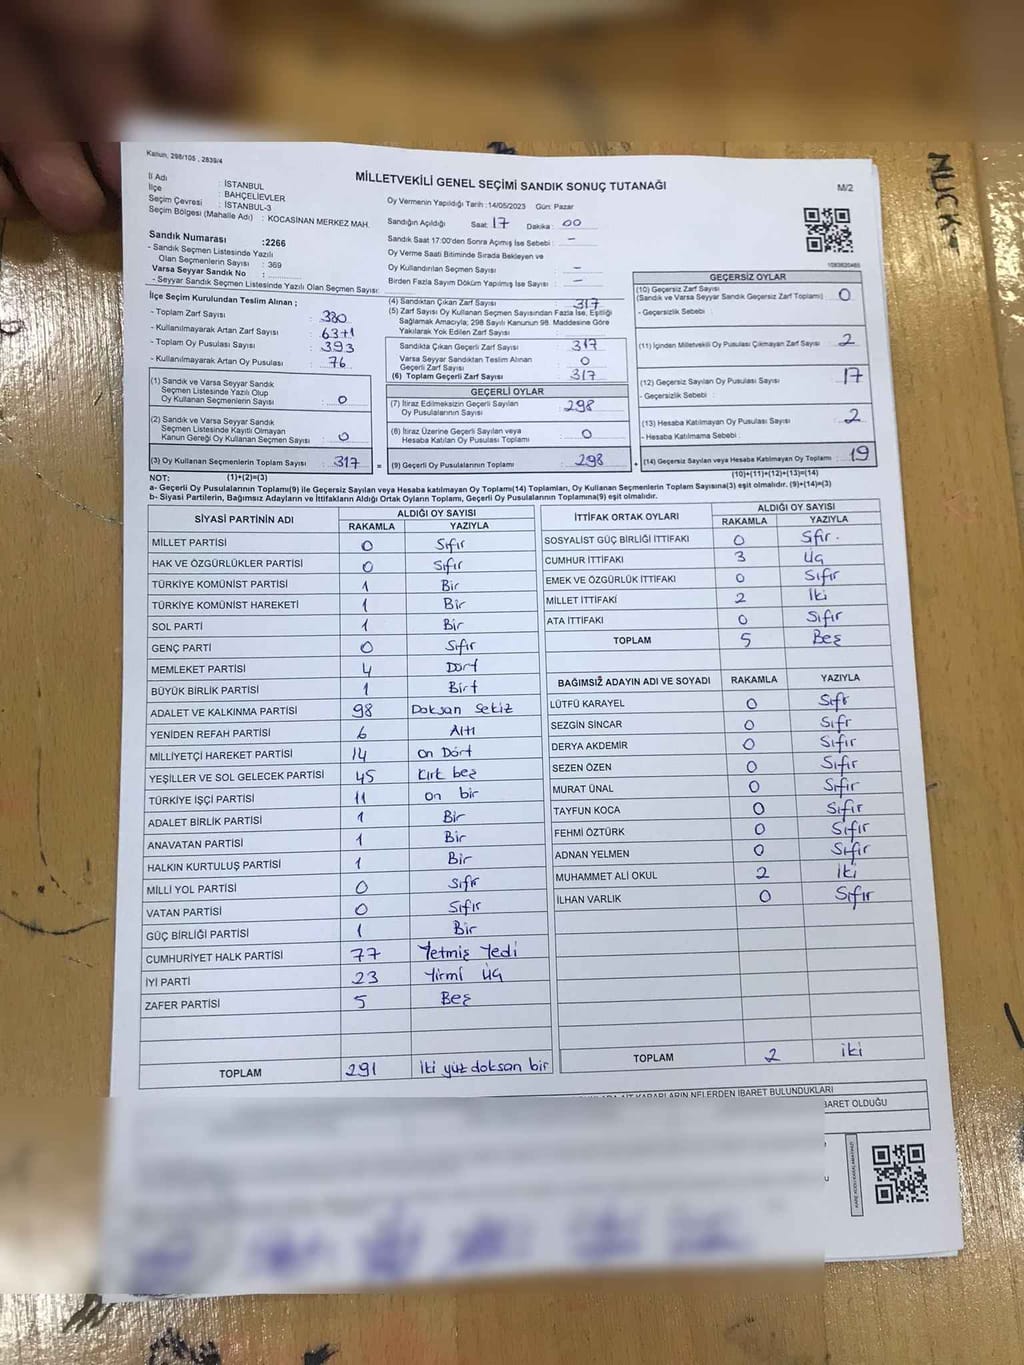 Kanun; 298/105 , 2839/4
MİLLETVEKİLİ GENEL SEÇİMİ SANDIK SONUÇ TUTANAĞI
M/2
İl Adı : İSTANBUL
İlçe : BAHÇELİEVLER
Seçim Çevresi : İSTANBUL-3
Seçim Bölgesi (Mahalle Adı) : KOCASİNAN MERKEZ MAH.
Sandık Numarası :2266
- Sandık Seçmen Listesinde Yazılı
Olan Seçmenlerin Sayısı : 369
Varsa Seyyar Sandık No :
- Seyyar Sandık Seçmen Listesinde Yazılı Olan Seçmen Sayısı:
Oy Vermenin Yapıldığı Tarih :14/05/2023 Gün: Pazar
Sandığın Açıldığı Saat: 17 Dakika : 00
Sandık Saat 17:00'den Sonra Açımış İse Sebebi : –
Oy Verme Saati Bitiminde Sırada Bekleyen ve
Oy Kullandırılan Seçmen Sayısı : –
Birden Fazla Sayım Döküm Yapılmış İse Sayısı : –
İlçe Seçim Kurulundan Teslim Alınan ;
- Toplam Zarf Sayısı : 380
- Kullanılmayarak Artan Zarf Sayısı : 63+1
- Toplam Oy Pusulası Sayısı : 393
- Kullanılmayarak Artan Oy Pusulası : 76
(1) Sandık ve Varsa Seyyar Sandık
Seçmen Listesinde Yazılı Olup
Oy Kullanan Seçmenlerin Sayısı : 0
(2) Sandık ve Varsa Seyyar Sandık
Seçmen Listesinde Kayıtlı Olmayan
Kanun Gereği Oy Kullanan Seçmen Sayısı : 0
(3) Oy Kullanan Seçmenlerin Toplam Sayısı : 317 =
(1)+(2)=(3)
(4) Sandıktan Çıkan Zarf Sayısı : 317
(5) Zarf Sayısı Oy Kullanan Seçmen Sayısından Fazla İse, Eşitliği
Sağlamak Amacıyla; 298 Sayılı Kanunun 98. Maddesine Göre
Yakılarak Yok Edilen Zarf Sayısı :
Sandıkta Çıkan Geçerli Zarf Sayısı : 317
Varsa Seyyar Sandıktan Teslim Alınan
Geçerli Zarf Sayısı : 0
(6) Toplam Geçerli Zarf Sayısı : 317
GEÇERLİ OYLAR
(7) İtiraz Edilmeksizin Geçerli Sayılan
Oy Pusulalarının Sayısı : 298
(8) İtiraz Üzerine Geçerli Sayılan veya
Hesaba Katılan Oy Pusulası Toplamı : 0
(9) Geçerli Oy Pusulalarının Toplamı : 298 +
GEÇERSİZ OYLAR
(10) Geçersiz Zarf Sayısı
(Sandık ve Varsa Seyyar Sandık Geçersiz Zarf Toplamı) : 0
- Geçersizlik Sebebi :
(11) İçinden Milletvekili Oy Pusulası Çıkmayan Zarf Sayısı : 2
(12) Geçersiz Sayılan Oy Pusulası Sayısı : 17
- Geçersizlik Sebebi :
(13) Hesaba Katılmayan Oy Pusulası Sayısı : 2
- Hesaba Katılmama Sebebi :
(14) Geçersiz Sayılan veya Hesaba Katılmayan Oy Toplamı : 19
(10)+(11)+(12)+(13)=(14)
NOT:
a- Geçerli Oy Pusulalarının Toplamı(9) ile Geçersiz Sayılan veya Hesaba katılmayan Oy Toplamı(14) Toplamları, Oy Kullanan Seçmenlerin Toplam Sayısına(3) eşit olmalıdır. (9)+(14)=(3)
b- Siyasi Partilerin, Bağımsız Adayların ve İttifakların Aldığı Ortak Oyların Toplamı, Geçerli Oy Pusulalarının Toplamına(9) eşit olmalıdır.
SİYASİ PARTİNİN ADI ALDIĞI OY SAYISI
RAKAMLA YAZIYLA
MİLLET PARTİSİ 0 Sıfır
HAK VE ÖZGÜRLÜKLER PARTİSİ 0 Sıfır
TÜRKİYE KOMÜNİST PARTİSİ 1 Bir
TÜRKİYE KOMÜNİST HAREKETİ 1 Bir
SOL PARTİ 1 Bir
GENÇ PARTİ 0 Sıfır
MEMLEKET PARTİSİ 4 Dört
BÜYÜK BİRLİK PARTİSİ 1 Birt
ADALET VE KALKINMA PARTİSİ 98 Doksan sekiz
YENİDEN REFAH PARTİSİ 6 Altı
MİLLİYETÇİ HAREKET PARTİSİ 14 on Dört
YEŞİLLER VE SOL GELECEK PARTİSİ 45 kırk beş
TÜRKİYE İŞÇİ PARTİSİ 11 on bir
ADALET BİRLİK PARTİSİ 1 Bir
ANAVATAN PARTİSİ 1 Bir
HALKIN KURTULUŞ PARTİSİ 1 Bir
MİLLİ YOL PARTİSİ 0 Sıfır
VATAN PARTİSİ 0 Sıfır
GÜÇ BİRLİĞİ PARTİSİ 1 Bir
CUMHURİYET HALK PARTİSİ 77 Yetmiş Yedi
İYİ PARTİ 23 Yirmi Üç
ZAFER PARTİSİ 5 Beş
TOPLAM 291 İki yüz doksan bir
İTTİFAK ORTAK OYLARI ALDIĞI OY SAYISI
RAKAMLA YAZIYLA
SOSYALİST GÜÇ BİRLİĞİ İTTİFAKI 0 Sfır.
CUMHUR İTTİFAKI 3 Üç
EMEK VE ÖZGÜRLÜK İTTİFAKI 0 Sıfır
MİLLET İTTİFAKI 2 İki
ATA İTTİFAKI 0 Sıfır
TOPLAM 5 Beş
BAĞIMSIZ ADAYIN ADI VE SOYADI RAKAMLA YAZIYLA
LÜTFÜ KARAYEL 0 Sıfr
SEZGİN SİNCAR 0 Sıfr
DERYA AKDEMİR 0 Sıfır
SEZEN ÖZEN 0 Sıfır
MURAT ÜNAL 0 Sıfır
TAYFUN KOCA 0 Sıfır
FEHMİ ÖZTÜRK 0 Sıfır
ADNAN YELMEN 0 Sıfır
MUHAMMET ALİ OKUL 2 İki
İLHAN VARLIK 0 Sıfır
TOPLAM 2 iki
KARARLARIN NELERDEN İBARET BULUNDUKLARI
BARET OLDUĞU